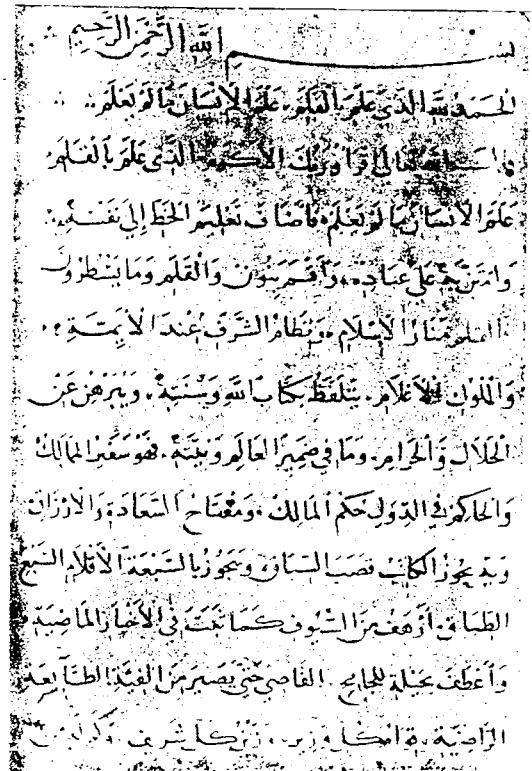 بسم الله الرحمن الرحيم
الحمد لله الذي علم بالقلم علم الإنسان ما لم يعلم
الله تعالى اقرأ وربك الأكرم الذي علم بالقلم
علم الإنسان ما لم يعلم فأضاف تعليم الخط إلى نفسه
وامتن به على عباده وأقسم بنون والقلم وما يسطرون
القلم منار الإسلام ونظام الشرف عند الأئمة
والملوك الأعلام يتلفظ بكتاب الله وسنته ويبرهن عن
الحلال والحرام وما في ضمير العالم ونيته فهو سفير الممالك
والحاكم في الدول حكم المالك ومفتاح السعادة والأرزاق
وبه يحوز الكاتب قصب السباق ويحوز بالسبعة الأقلام السبع
الطباق أرهف من السيوف كما نعت في الأخبار الماضية
وأعطف بحيلة القاصي حتى يصير من الفئة الطائعة
الراضية وزير شريف